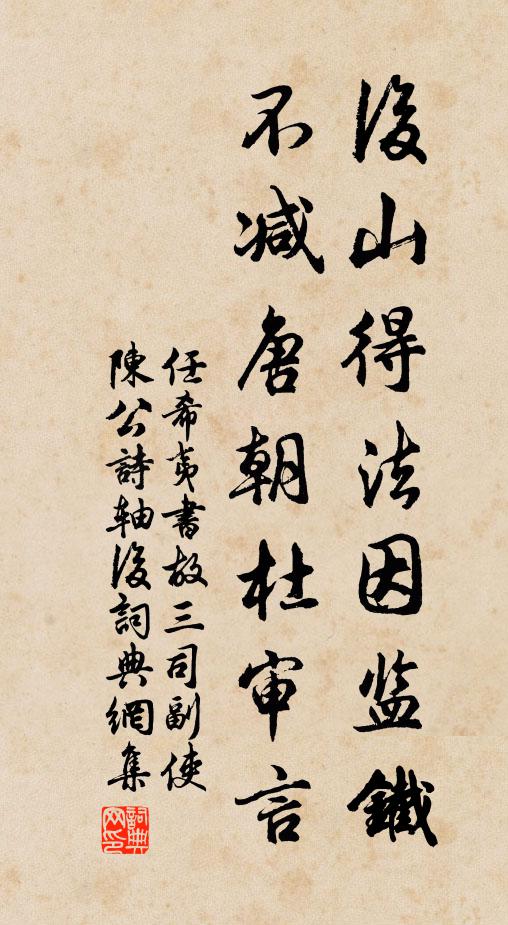 後山得法因监鐵
不减唐朝杜审言
任希夷書故三司副使
陳公詩軸後詞典網集
詞典网印